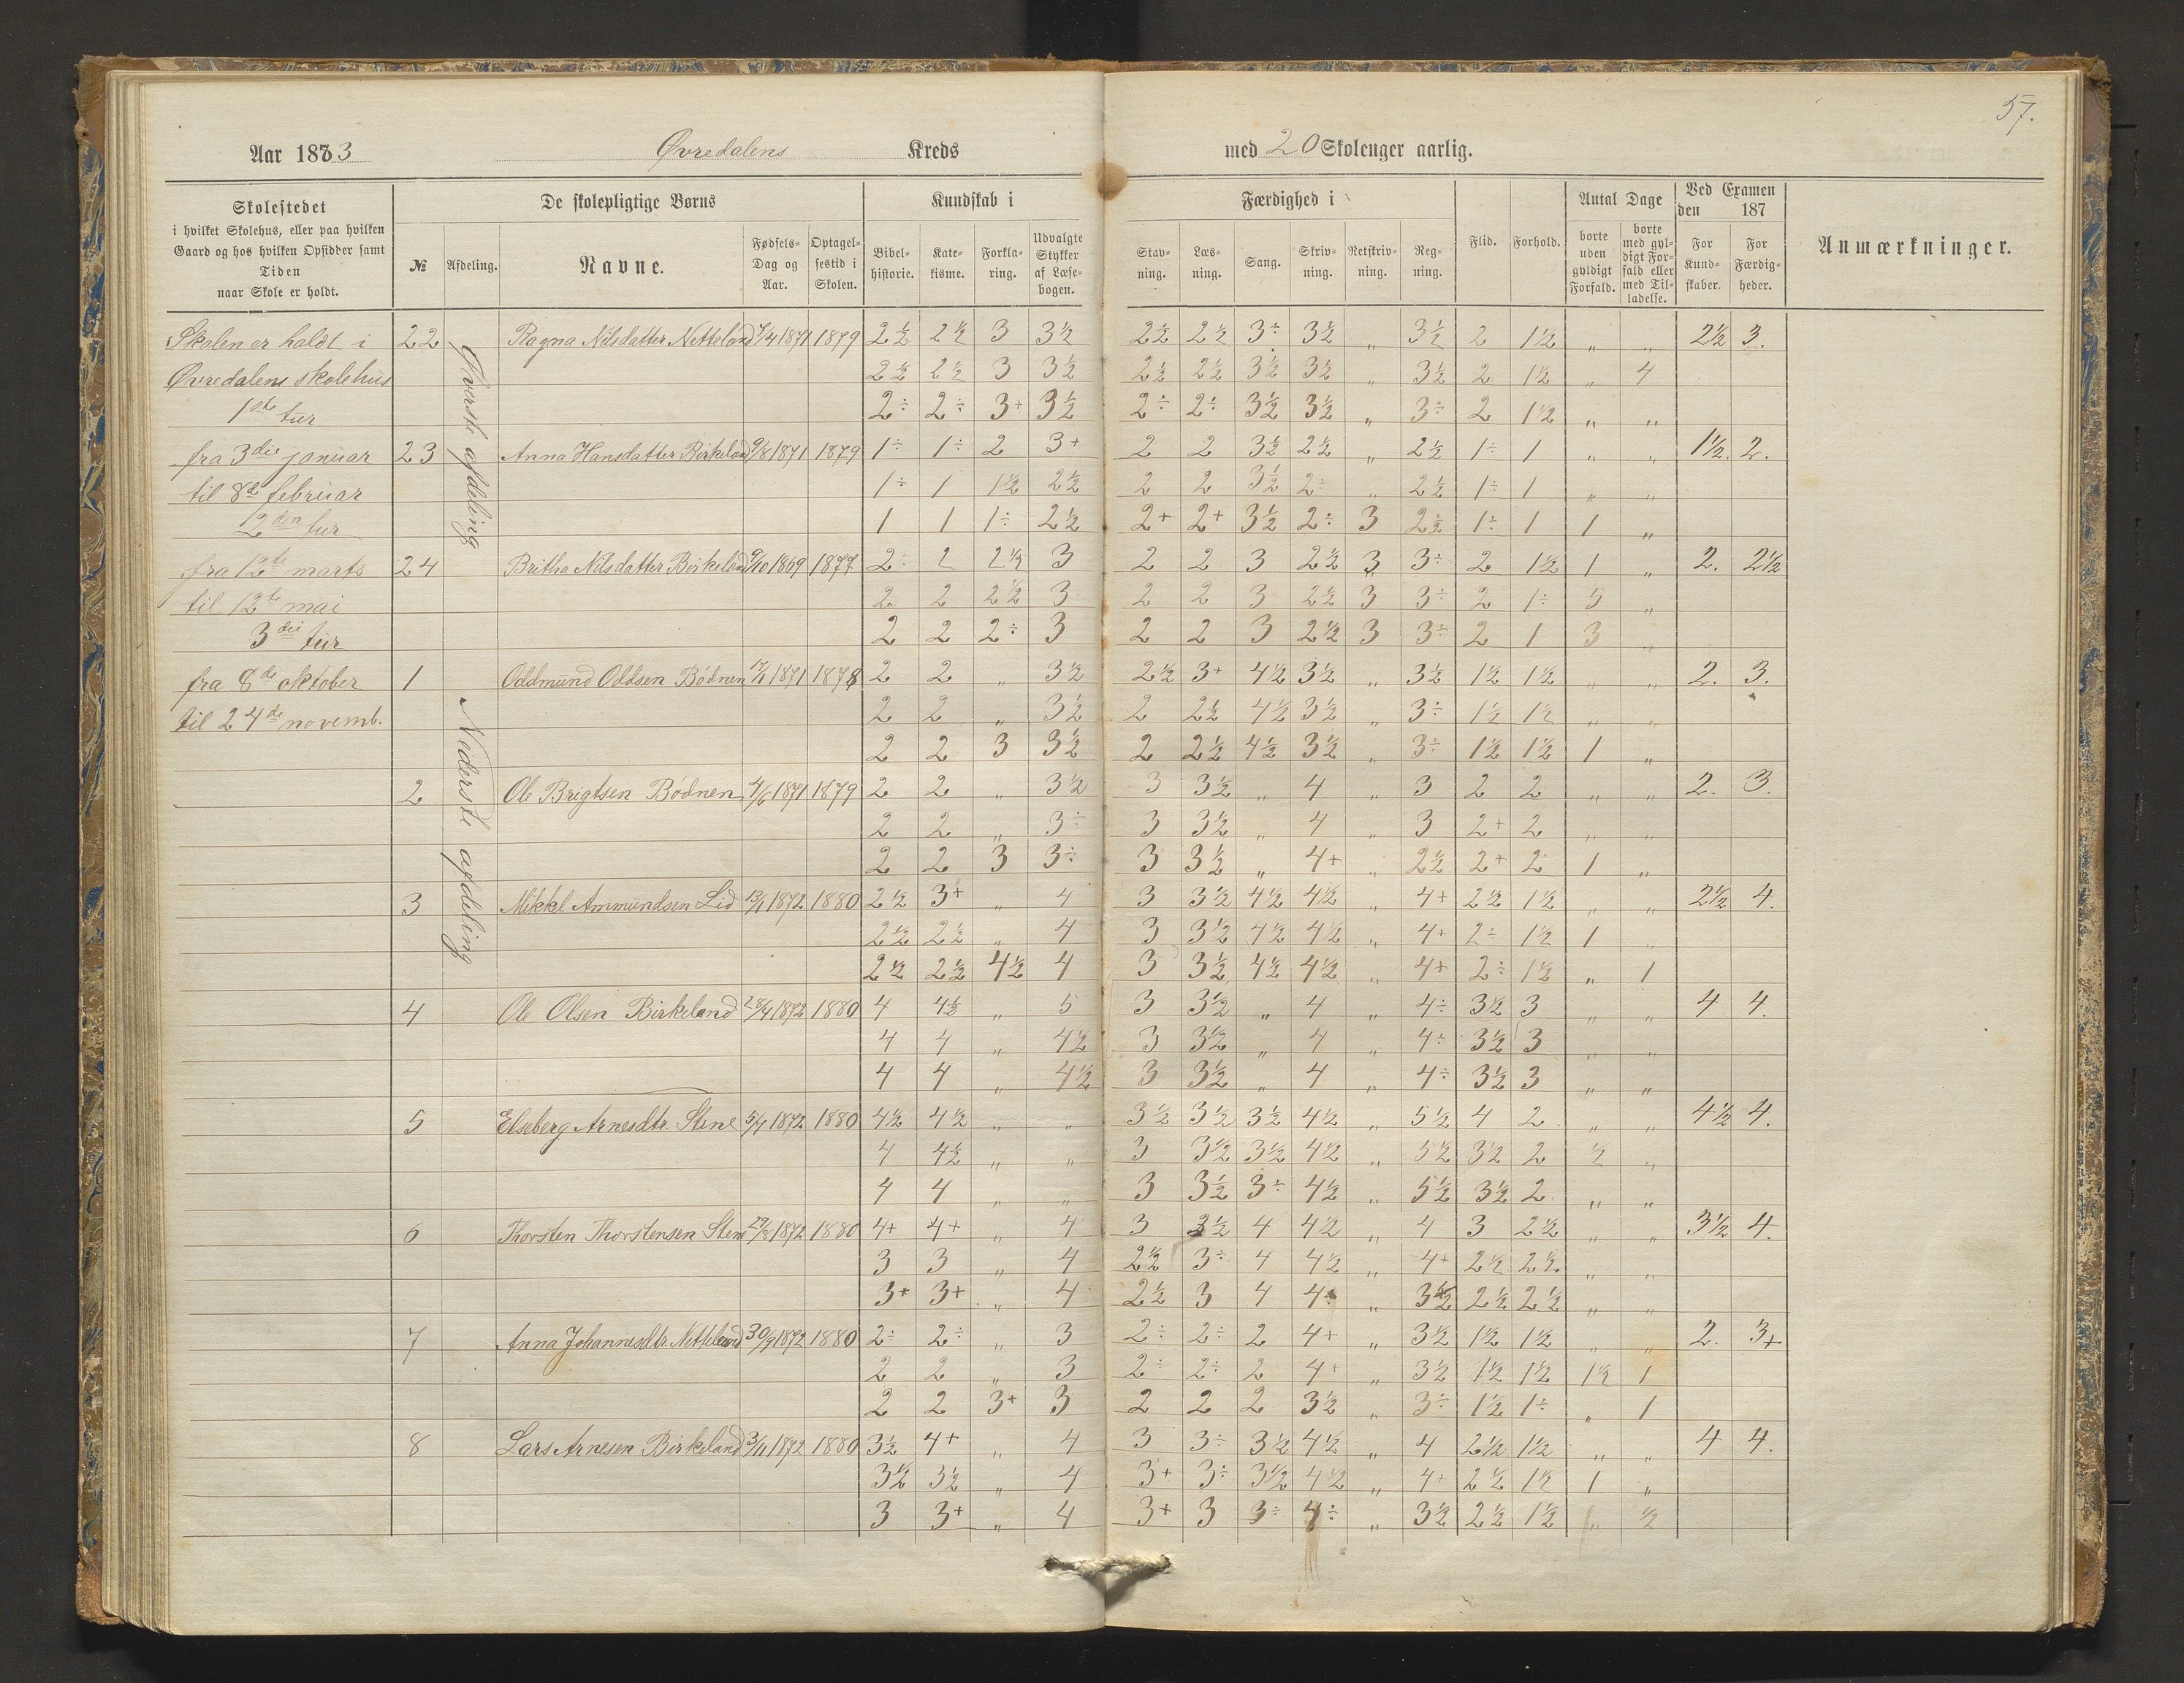 57.
Aar 1883 Øvredalens Kreds med 20 Skoleuger aarlig.
Skolestedet i hvilket Skolehus, eller paa hvilken Gaard og hos hvilken Opsidder samt Tiden naar Skole er holdt.
De skolepligtige Børns
№ Afdeling. Navne. Fødsels-Dag og Aar. Optagelsestid i Skolen.
Kundskab i
Bibelhistorie. Katekisme. Forklaring. Udvalgte Stykker af Læsebogen.
Færdighed i
Stavning. Læsning. Sang. Skrivning. Retskrivning. Regning.
Flid. Forhold.
Antal Dage
borte uden gyldigt Forfald. borte med gyldigt Forfald eller med Tilladelse.
Ved Examen den 187
For Kundskaber. For Færdigheder.
Anmærkninger.
Skolen er holdt i
Øvredalens skolehus
1ste tur
fra 3die januar
til 8de februar
2den tur
fra 12te marts
til 12te mai
3die tur
fra 8de oktober
til 24de novemb.
Øverste afdeling
22 Ragna Nilsdatter Netteland 7/4 1871 1879 2½ 2½ 3 3½ 2½ 2½ 3÷ 3½ „ 3½ 2 1½ „ „ 2½ 3.
2½ 2½ 3 3½ 2½ 2½ 3½ 3½ „ 3½ 2 1½ „ 4
2÷ 2÷ 3+ 3½ 2÷ 2÷ 3½ 3½ „ 3÷ 2 1½ „ „
23 Anna Hansdatter Birkeland 9/8 1871 1879 1÷ 1÷ 2 3+ 2 2 3½ 2½ „ 2½ 1÷ 1 „ „ 1½. 2.
1÷ 1 1½ 2½ 2 2 3½ 2÷ „ 2½ 1÷ 1 „ „
1 1 1÷ 2½ 2+ 2+ 3½ 2÷ 3 2½ 1÷ 1 1 „
24 Britha Nilsdatter Birkeland 9/10 1869 1877 2÷ 2 2½ 3 2 2 3 2½ 3 3÷ 2 1½ 1 „ 2. 2½
2 2 2½ 3 2 2 3 2½ 3 3÷ 2 1÷ 5 „
2 2 2÷ 3 2 2 3 2½ 3 3÷ 2 1 3 „
Nederste afdeling
1 Oddmund Oddsen Bødnen 17/1 1871 1878 2 2 „ 3½ 2½ 3+ 4½ 3½ „ 3½ 1½ 1½ „ „ 2. 3.
2 2 „ 3½ 2 2½ 4½ 3½ „ 3÷ 1½ 1½ „ „
2 2 3 3½ 2 2½ 4½ 3½ „ 3÷ 1½ 1½ 1 „
2 Ole Brigtsen Bødnen 4/6 1871 1879 2 2 „ 3½ 3 3½ „ 4 „ 3 2 2 „ „ 2. 3.
2 2 „ 3÷ 3 3½ „ 4 „ 3 2+ 2 „ „
2 2 3 3÷ 3 3½ „ 4+ „ 2½ 2+ 2 1 „
3 Mikkl Ammundsen Lid 13/1 1872 1880 2½ 3+ „ 4 3 3½ 4½ 4½ „ 4+ 2½ 1½ „ „ 2½ 4.
2½ 2½ „ 4 3 3½ 4½ 4½ „ 4+ 2÷ 1½ 1 „
2½ 2½ 4½ 4 3 3½ 4½ 4½ „ 4+ 2÷ 1½ „ 1
4 Ole Olsen Birkeland 28/4 1872 1880 4 4½ „ 5 3 3½ „ 4 „ 4÷ 3½ 3 „ „ 4 4.
4 4 „ 4½ 3 3½ „ 4 „ 4÷ 3½ 3 „ „
4 4 „ 4½ 3 3½ „ 4 „ 4÷ 3½ 3 „ „
5 Elseberg Arnesdtr. Stene 5/4 1872 1880 4½ 4½ „ „ 3½ 3½ 3½ 4½ „ 5½ 4 2 „ „ 4½ 4.
4 4½ „ „ 3 3½ 3½ 4½ „ 5½ 3½ 2 ½ „
4 4 „ „ 3 3½ 3÷ 4½ „ 5½ 3½ 2 „ „
6 Thorsten Thorstensen Stene 29/8 1872 1880 4+ 4+ „ 4 3 3½ 4 4½ „ 4 3 2½ „ „ 3½ 4.
3 3 „ 4 2½ 3÷ 4 4½ „ 4+ 2½ 2½ „ „
3+ 3+ „ 4 2½ 3 4 4÷ „ 3½ 2½ 2½ „ „
7 Anna Johannesdtr. Netteland 30/9 1872 1880 2÷ 2÷ „ 3 2÷ 2÷ 2 4+ „ 3½ 1½ 1½ „ „ 2. 3+
2 2 „ 3 2÷ 2÷ 2 4+ „ 3½ 1½ 1½ 1½ 1
2 2 3+ 3 2 2 2 3½ „ 3÷ 1½ 1÷ „ 1
8 Lars Arnesen Birkeland 3/11 1872 1880 3½ 4+ „ 4 3 3÷ 3½ 4½ „ 4 2½ 1½ „ „ 4 4.
3½ 3½ „ 4 3+ 3÷ 3½ 4½ „ 4+ 2½ 1½ 1 „
3 3+ „ 4 3+ 3 3÷ 4÷ „ 3½ 2½ 1½ „ ½